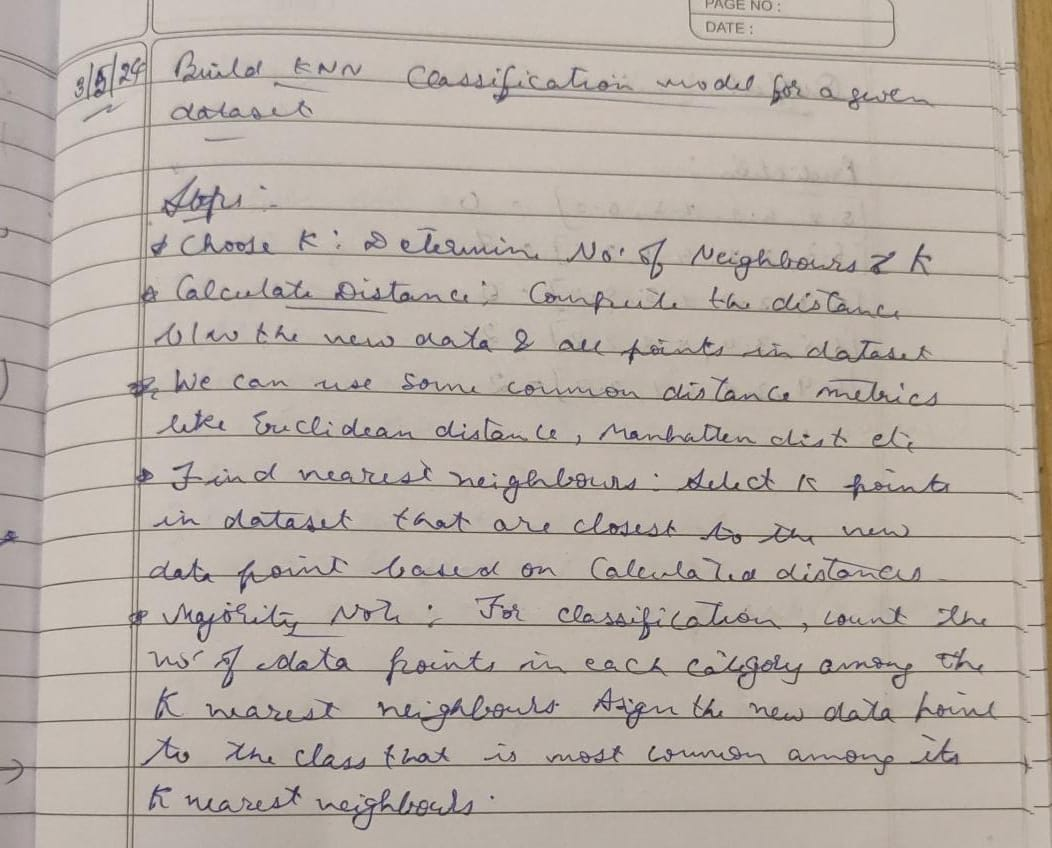 PAGE NO :
DATE :
3/5/24 Build KNN Classification model for a given
dataset
Steps :-
* Choose K : Determin No. of Neighbours K
* Calculate Distance : Compute the distance
b/w the new data & all points in dataset
* We can use some common distance metrics
like Euclidean distance, Manhatten dist etc
* Find nearest neighbours : Select K points
in dataset that are closest to the new
data point based on Calculated distances
* Majority Vote : For classification, count the
no. of data points in each category among the
K nearest neighbours. Asign the new data point
to the class that is most common among its
K nearest neighbours.